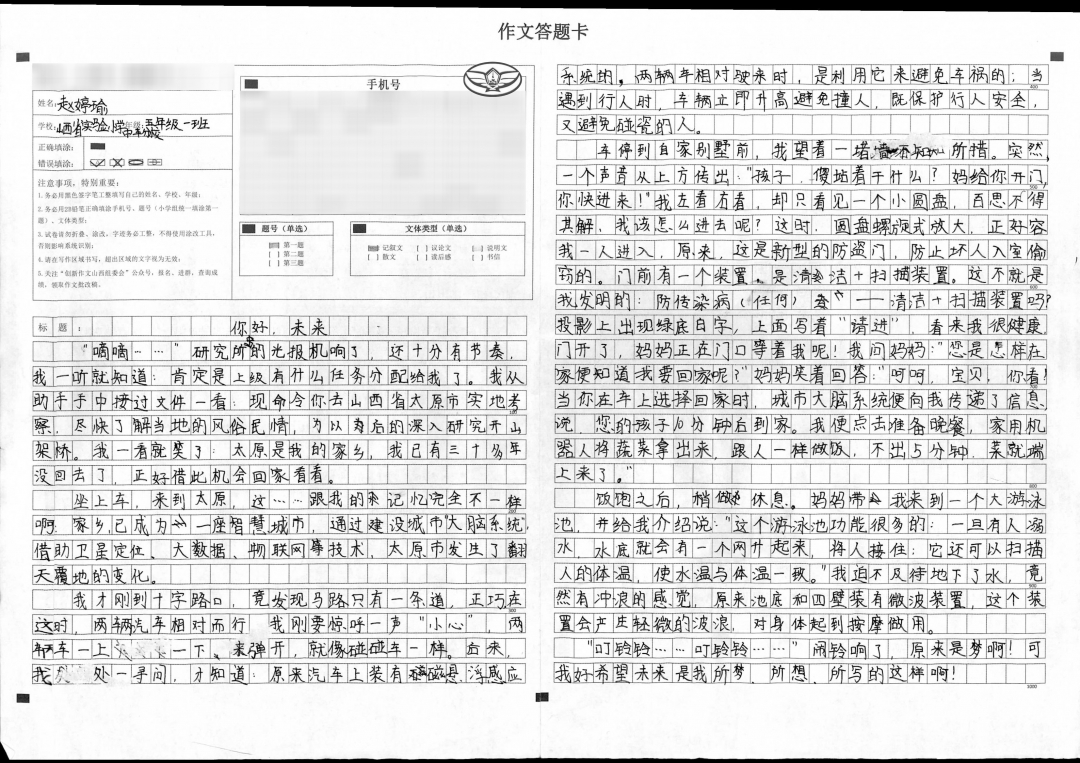 作文答题卡
姓名:赵婷瑜
学校:山西省实验小学 年级:五年级一班
正确填涂:
错误填涂:
注意事项，特别重要:
1.务必用黑色签字笔工整填写自己的姓名、学校、年级;
2.务必用2B铅笔正确填涂手机号、题号（小学组统一填涂第一题）、文体类型;
3.试卷请勿折叠、涂改，字迹务必工整，不得使用涂改工具，否则影响系统识别;
4.请在写作区域书写，超出区域的文字视为无效;
5.关注“创新作文山西组委会”公众号，报名、进群、查询成绩，领取作文批改稿。
手机号
题号（单选）
第一题
[ ] 第二题
[ ] 第三题
文体类型（单选）
记叙文 [ ] 议论文 [ ] 说明文
[ ] 散文 [ ] 读后感 [ ] 书信
标题: 你好，未来
“嘀嘀……”研究所的光报机响了，还十分有节奏，
我一听就知道:肯定是上级有什么任务分配给我了。我从
助手手中接过文件一看:现命令你去山西省太原市实地考
察，尽快了解当地的风俗民情，为以为后的深入研究开山
架桥。我一看就笑了:太原是我的家乡，我已有三十多年
没回去了，正好借此机会回家看看。
坐上车，来到太原，这……跟我的记忆完全不一样
啊!家乡已成为一座智慧城市，通过建设城市大脑系统，
借助卫星定位、大数据、物联网等技术，太原市发生了翻
天覆地的变化。
我才刚到十字路口，竟发现马路只有一条道，正巧在
这时，两辆汽车相对而行，我刚要惊呼一声“小心”，两
辆车一上一下，来弹开，就像碰碰车一样。后来，
我处一寻问，才知道:原来汽车上装有磁悬浮感应
系统的。两辆车相对驶来时，是利用它来避免车祸的;当
遇到行人时，车辆立即升高避免撞人，既保护行人安全，
又避免碰瓷的人。
车停到自家别墅前，我望着一堵墙不知所措。突然，
一个声音从上方传出:“孩子，傻站着干什么?妈给你开门，
你快进来!”我左看右看，却只看见一个小圆盘，百思不得
其解，我该怎么进去呢?这时，圆盘螺旋式放大，正好容
我一人进入，原来，这是新型的防盗门，防止坏人入室偷
窃的。门前有一个装置，是清洁+扫描装置。这不就是
我发明的:防传染病（任何）——清洁+扫描装置吗?
投影上出现绿底白字，上面写着“请进”，看来我很健康，
门开了，妈妈正在门口等着我呢!我问妈妈:“您是怎样在
家便知道我要回家呢?”妈妈笑着回答:“呵呵，宝贝，你看!
当你在车上选择回家时，城市大脑系统便向我传递了信息，
说，您的孩子10分钟后到家。我便点击准备晚餐，家用机
器人将蔬菜拿出来，跟人一样做饭，不出5分钟，菜就端
上来了。”
饭饱之后，稍做休息。妈妈带我来到一个大游泳
池，并给我介绍说:“这个游泳池功能很多的:一旦有人溺
水，水底就会有一个网升起来，将人接住;它还可以扫描
人的体温，使水温与体温一致。”我迫不及待地下了水，竟
然有冲浪的感觉，原来池底和四壁装有微波装置，这个装
置会产生轻微的波浪，对身体起到按摩做用。
“叮铃铃……叮铃铃……”闹铃响了，原来是梦啊!可
我好希望未来是我所梦、所想、所写的这样啊!